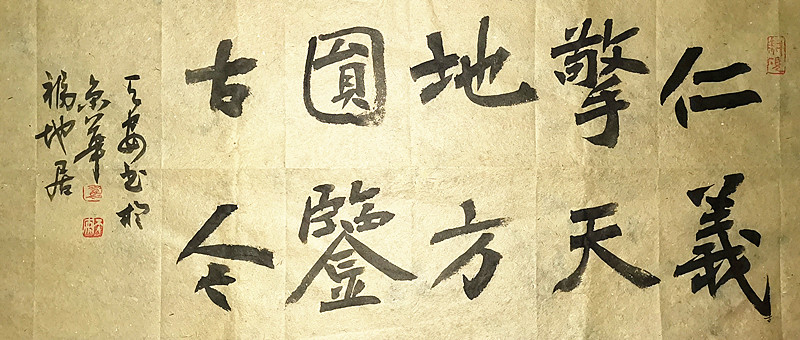 仁義
擎天
地方
圓鑒
古今
安书於
京華
福地居